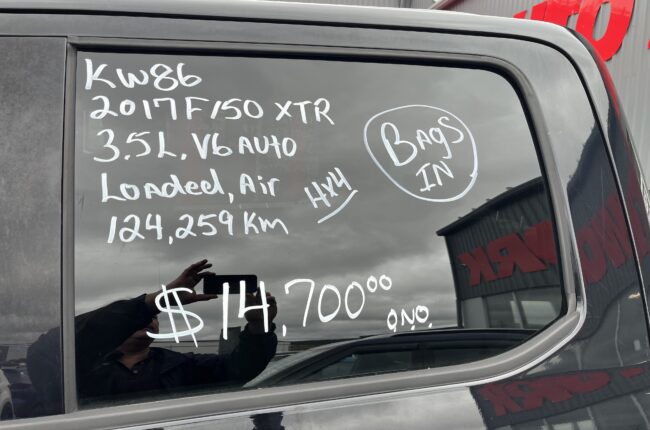 KW86
2017 F150 XTR
3.5L. V6 AUTO
Loaded, Air
4x4
124,259 Km
BAGS
IN
$14,700.00
O.N.O.